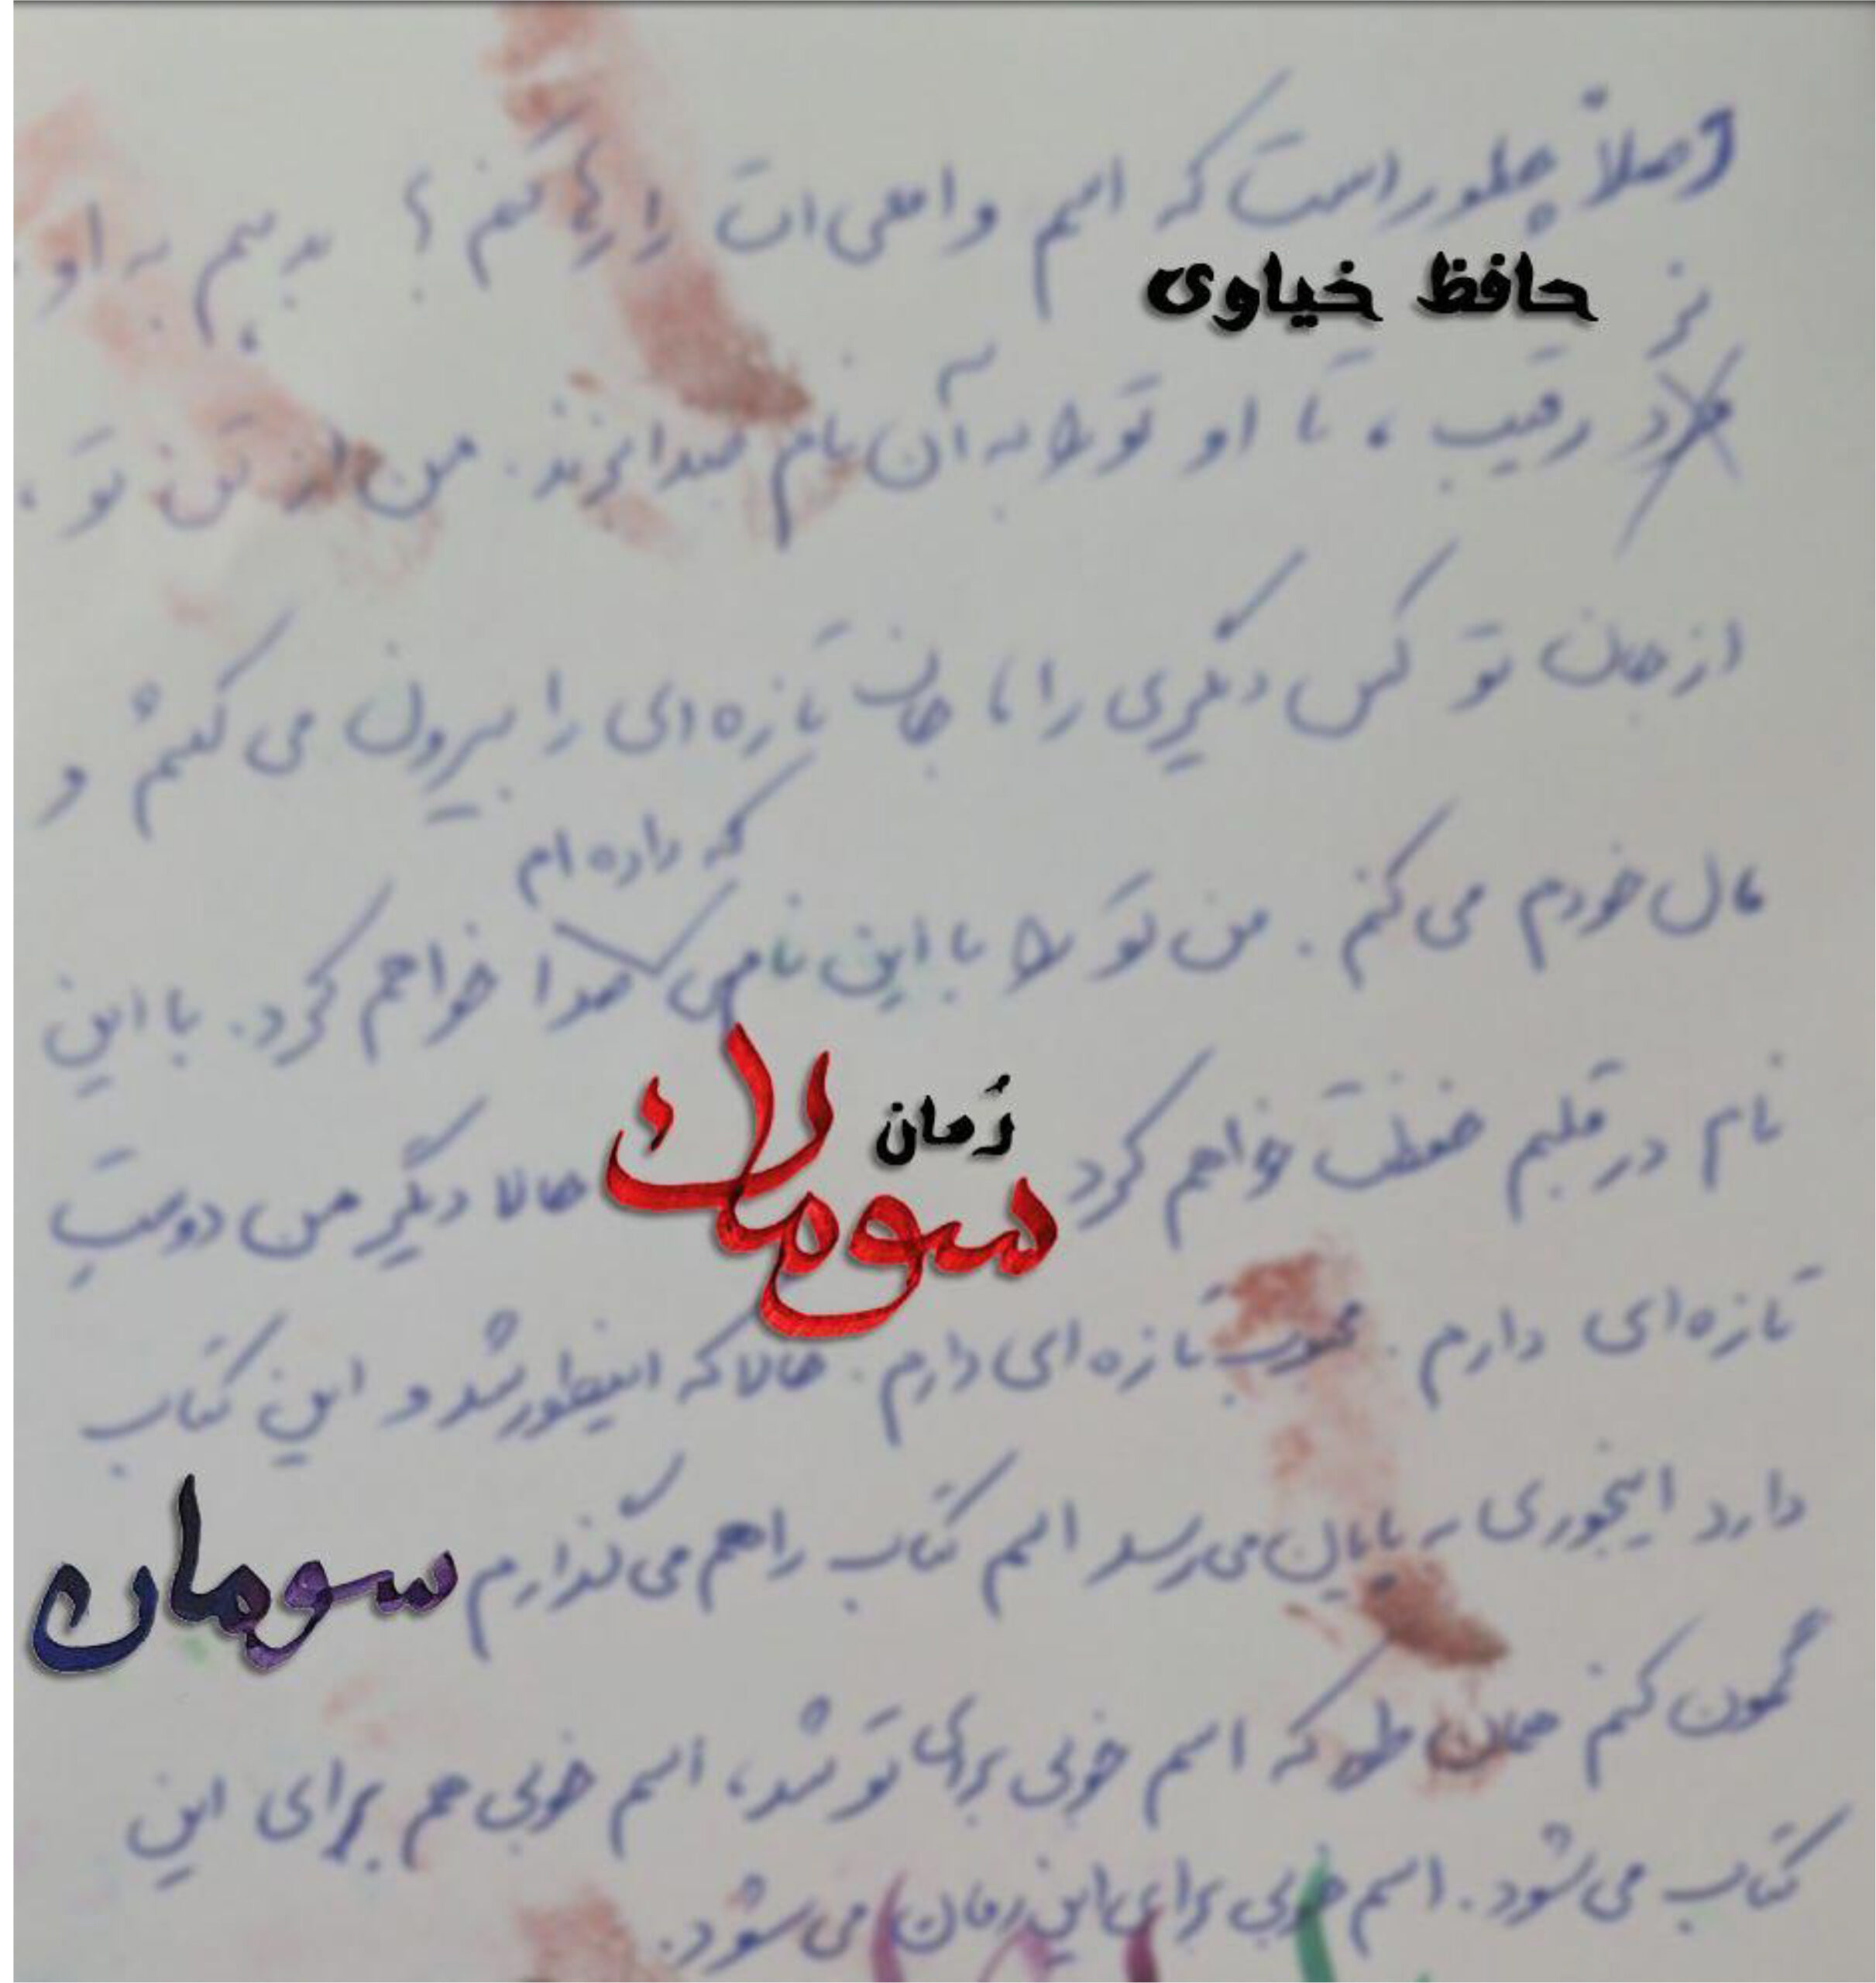 اصلاً چطور است که اسم واقعی‌ات را رها کنم؟ بدهم به او
حافظ خیاوی
نر
مرد رقیب، تا او تو را به آن نام صدا بزند. من از تن تو،
از جان تو کس دیگری را، جان تازه‌ای را بیرون می‌کشم و
که داده‌ام
مال خودم می‌کنم. من تو را با این نامی صدا خواهم کرد. با این
رُمان
نام در قلبم حفظت خواهم کرد سومان حالا دیگر من دوست
تازه‌ای دارم. محبوب تازه‌ای دارم. حالا که اینطور شد و این کتاب
دارد اینجوری به پایان می‌رسد اسم کتاب را هم می‌گذارم سومان
گمون کنم همان طور که اسم خوبی برای تو شد، اسم خوبی هم برای این
کتاب می‌شود. اسم خوبی برای این رمان می‌شود.